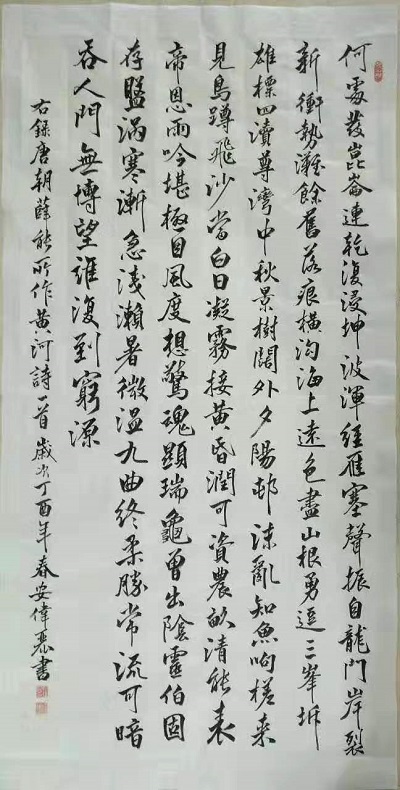 何處發崑崙連乾復浸坤波渾經雁塞聲振自龍門岸裂
新衝勢灘餘舊落痕橫溝海上遠色盡山根勇逗三峯坼
雄標四瀆尊灣中秋景樹闊外夕陽邨沫亂知魚响槎来
見鳥蹲飛沙當白日凝霧接黄昏潤可資農畝清能表
帝恩雨吟堪極目風度想驚魂顯瑞龜曽出陰靈伯固
存盤渦寒漸急淺瀨暑微温九曲終柔勝常流可暗
吞人門無博望誰復到窮源
右錄唐朝薛能所作黄河詩一首歲次丁酉年春安偉恭書